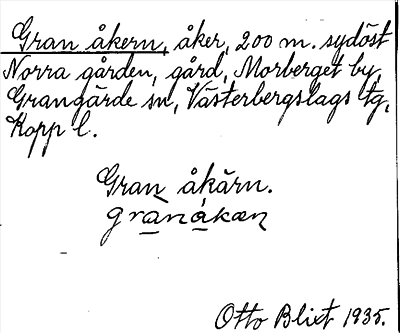 Gran åkern, åker, 200 m. sydöst
Norra gården, gård, Morberget by,
Grangärde sn, Västerbergslags tg,
Kopp l.
Gran åkärn.
granåkæn
Otto Blixt 1935.